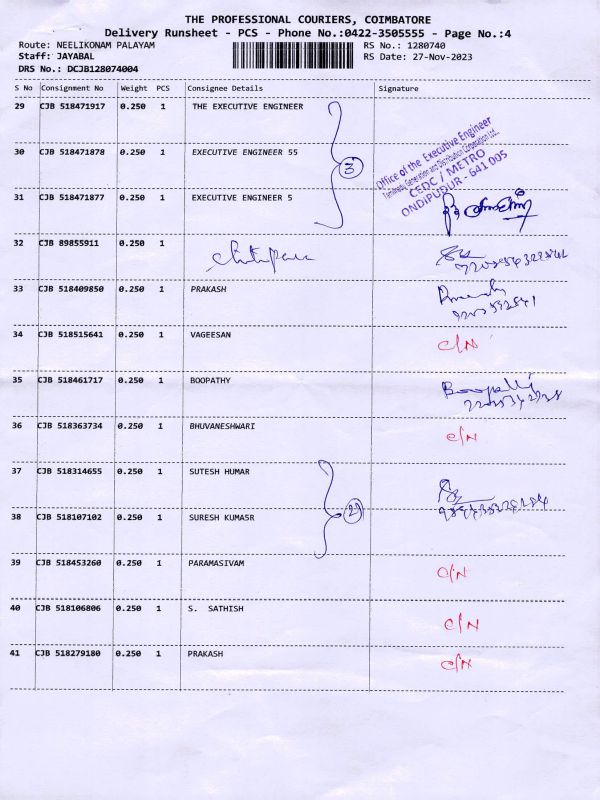 THE PROFESSIONAL COURIERS, COIMBATORE
Delivery Runsheet - PCS - Phone No.:0422-3505555 - Page No.:4
Route: NEELIKONAM PALAYAM RS No.: 1280740
Staff: JAYABAL RS Date: 27-Nov-2023
DRS No.: DCJB128074004
S No Consignment No Weight PCS Consignee Details Signature
29 CJB 518471917 0.250 1 THE EXECUTIVE ENGINEER
30 CJB 518471878 0.250 1 EXECUTIVE ENGINEER 55
3
Office of the Executive Engineer
Tamilnadu Generation and Distribution Corporation Ltd.,
CEDC / METRO
ONDIPUDUR - 641 005
31 CJB 518471877 0.250 1 EXECUTIVE ENGINEER 5
32 CJB 89855911 0.250 1
33 CJB 518409850 0.250 1 PRAKASH
34 CJB 518515641 0.250 1 VAGEESAN C/N
35 CJB 518461717 0.250 1 BOOPATHY
36 CJB 518363734 0.250 1 BHUVANESHWARI C/N
37 CJB 518314655 0.250 1 SUTESH HUMAR
2
38 CJB 518107102 0.250 1 SURESH KUMASR
39 CJB 518453260 0.250 1 PARAMASIVAM C/N
40 CJB 518106806 0.250 1 S. SATHISH C/N
41 CJB 518279180 0.250 1 PRAKASH C/N